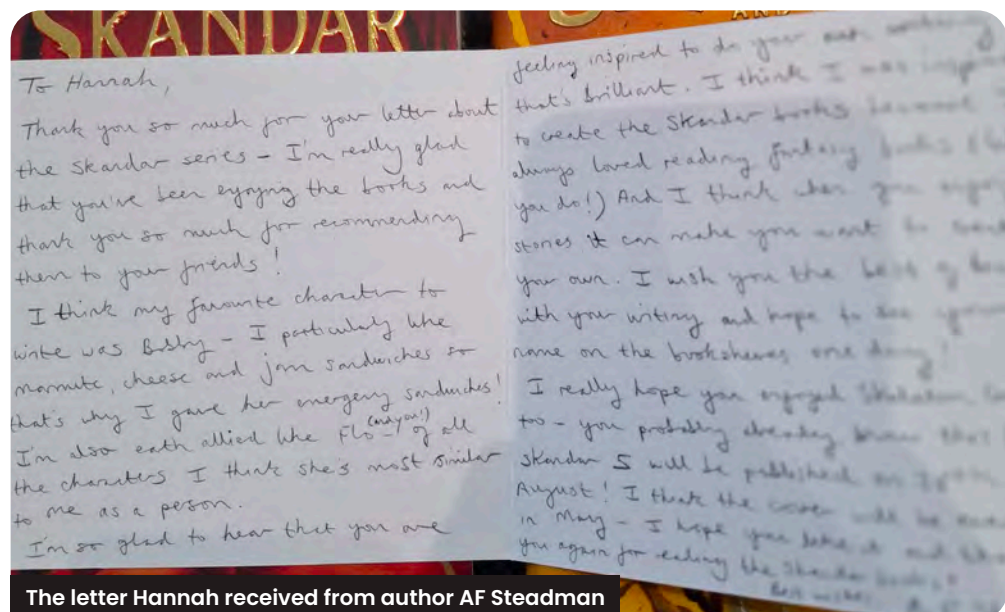 SKANDAR
AND
To Hannah,
Thank you so much for your letter about
the Skandar series – I'm really glad
that you've been enjoying the books and
thank you so much for recommending
them to your friends!
I think my favourite character to
write was Bobby – I particularly like
marmite, cheese and jam sandwiches so
that's why I gave her emergency sandwiches!
I'm also earth allied like Flo – (and you!) of all
the characters I think she's most similar
to me as a person.
I'm so glad to hear that you are
feeling inspired to do your own writing
that's brilliant. I think I was
to create the Skandar books because I
always loved reading fantasy books
you do!) And I think when you enjoy
stories it can make you want to
your own. I wish you the best of luck
with your writing and hope to see your
name on the bookshelves one day!
I really hope you enjoyed Skandar
too – you probably already know that
Skandar 5 will be published on
August! I think the cover will be
in May – I hope you like it and
you again for reading the Skandar books.
Best wishes
The letter Hannah received from author AF Steadman